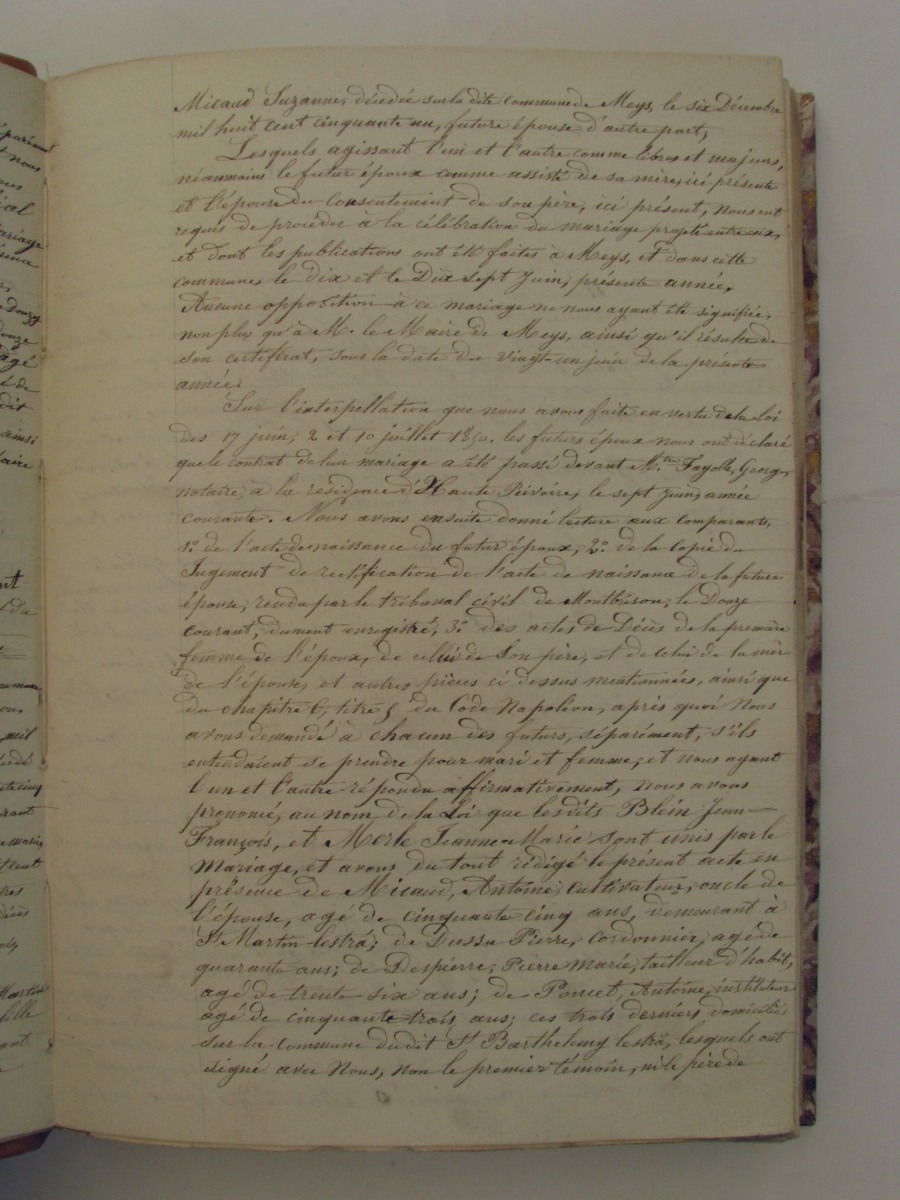 Micaud Suzanne, décédée sur la dite commune de Meys, le six Décembre
mil huit cent cinquante un, future épouse d'autre part;
Lesquels agissant l'un et l'autre comme libres et majeurs,
néanmoins le futur époux comme assisté de sa mère, ici présente
et l'épouse du consentement de son père, ici présent, nous ont
requis de procéder à la célébration du mariage projeté entre eux,
et dont les publications ont été faites à Meys, et dans cette
commune, le dix et le Dix sept Juin, présente année.
Aucune opposition à ce mariage ne nous ayant été signifiée,
non plus qu'à M. le Maire de Meys, ainsi qu'il résulte de
son certificat, sous la date du vingt-un juin de la présente
année.
Sur l'interpellation que nous avons faite en vertu de la loi
des 17 juin, 2 et 10 juillet 1850. les futurs époux nous ont déclaré
que le contrat de leur mariage a été passé devant M.tre Fayolle, George,
notaire, à la résidence d'Haute Rivoire, le sept Juin, année
courante. Nous avons ensuite donné lecture aux comparants,
1º. de l'acte de naissance du futur époux, 2º. de la copie du
Jugement de rectification de l'acte de naissance de la future
épouse, rendu par le tribunal civil de Montbrison, le Douze
courant, dument enregistré, 3º. des actes de Décès de la première
femme de l'époux, de celui de son père, et de celui de la mère
de l'épouse, et autres pièces ci dessus mentionnées, ainsi que
du chapitre 6, titre 5 du Code Napoléon, après quoi nous
avons demandé à chacun des futurs, séparément, s'ils
entendaient se prendre pour mari et femme, et nous ayant
l'un et l'autre répondu affirmativement, nous avons
prenoncé, au nom de la Loi que lesdits Blein Jean
François, et Merle Jeanne Marie sont unis par le
mariage, et avons du tout rédigé le présent acte en
présence de Micaud, Antoine, cultivateur, oncle de
l'épouse, agé de cinquante cinq ans, demeurant à
St Martin lestrá; de Dussu Pierre, cordonnier, agé de
quarante ans; de Despierre, Pierre Marie, tailleur d'habit,
agé de trente six ans; de Poncet, Antoine, instituteur
agé de cinquante trois ans; ces trois derniers domiciliés
sur la commune dudit St Barthelemy lestrá, lesquels ont
signé avec Nous, non le premier témoin, ni le père de